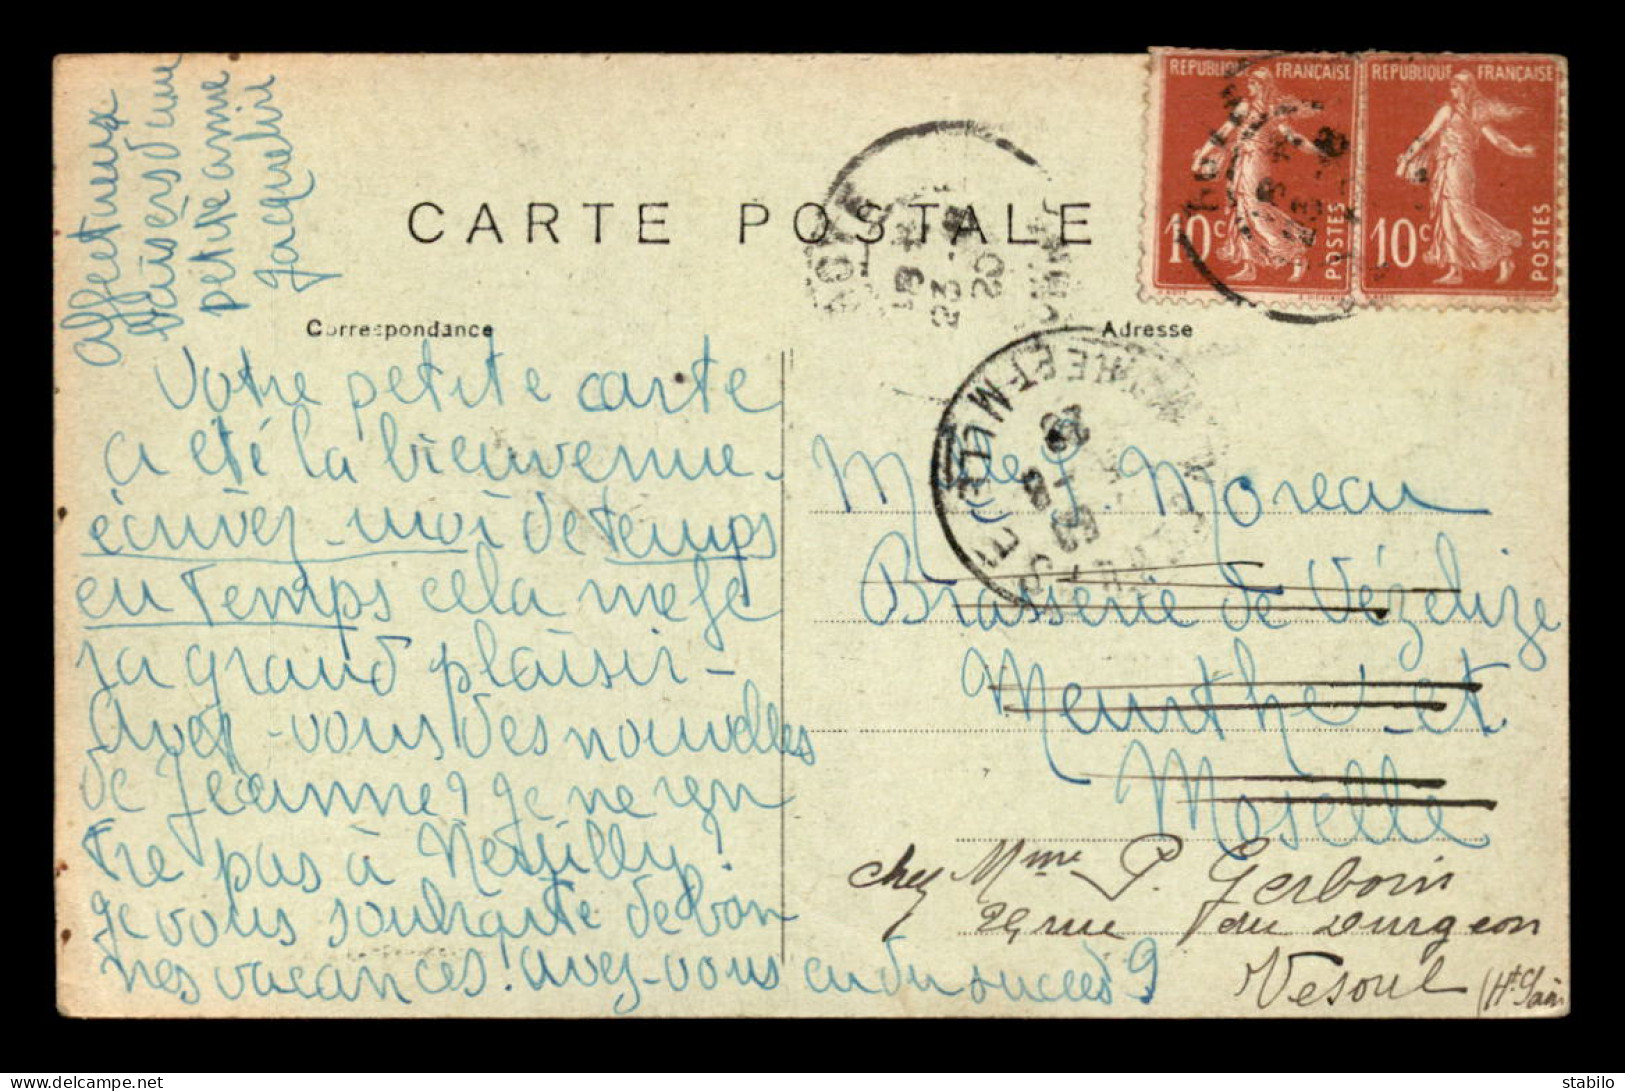 affectueux
baisers d'une
petite amie
Jacqueline
CARTE POSTALE
Correspondance
Votre petite carte
a été la bienvenue.
écrivez-moi de temps
en temps cela me fe
ra grand plaisir -
Avez-vous des nouvelles
de Jeanne? Je ne ren
tre pas à Neuilly!
Je vous souhaite de bon
nes vacances! avez-vous eu du succès?
REPUBLIQUE FRANÇAISE
10c
POSTES
REPUBLIQUE FRANÇAISE
10c
POSTES
Adresse
Melle J. Moreau
Brasserie de Vézelize
Meurthe-et
Moselle
chez Mme P. Gerboin
29 rue du Durgeon
Vesoul (Hte Saône
VEZELIZE
MEURTHE ET M LLE
23 - 8
22 - 8
stabilo